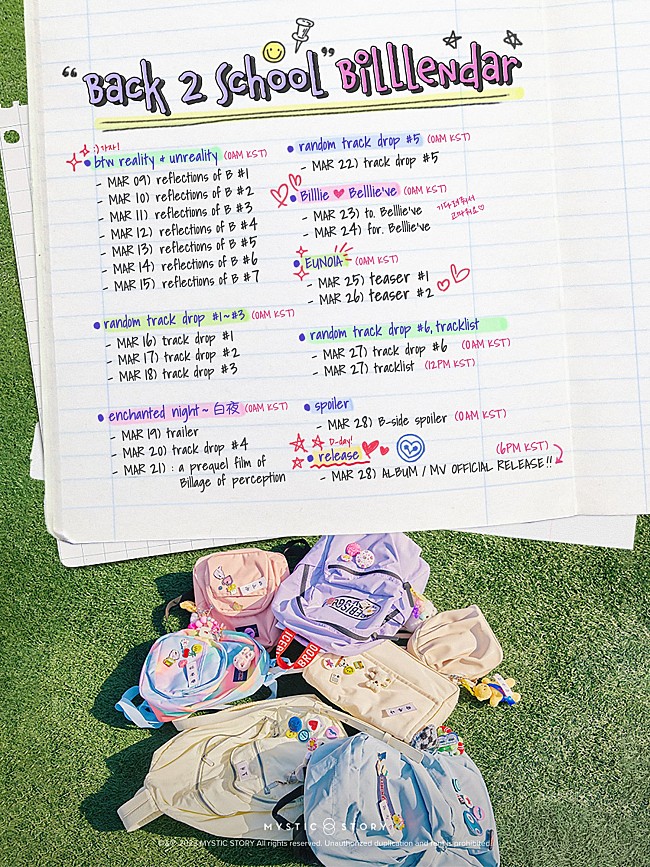 "Back 2 School" Billlendar
:) 가자!
btw reality & unreality (0AM KST)
- MAR 09) reflections of B #1
- MAR 10) reflections of B #2
- MAR 11) reflections of B #3
- MAR 12) reflections of B #4
- MAR 13) reflections of B #5
- MAR 14) reflections of B #6
- MAR 15) reflections of B #7
random track drop #1~#3 (0AM KST)
- MAR 16) track drop #1
- MAR 17) track drop #2
- MAR 18) track drop #3
enchanted night ~ 白夜 (0AM KST)
- MAR 19) trailer
- MAR 20) track drop #4
- MAR 21) : a prequel film of
Billage of perception
random track drop #5 (0AM KST)
- MAR 22) track drop #5
Billlie ♥ Belllie've (0AM KST)
- MAR 23) to. Belllie've
- MAR 24) for. Belllie've
기다려줘서
고마워요♡
EUNOIA (0AM KST)
- MAR 25) teaser #1
- MAR 26) teaser #2
random track drop #6, tracklist
- MAR 27) track drop #6 (0AM KST)
- MAR 27) tracklist (12PM KST)
spoiler
- MAR 28) B-side spoiler (0AM KST)
D-day!
release (6PM KST)
- MAR 28) ALBUM / MV OFFICIAL RELEASE!!
MYSTIC STORY
©&℗ 2023 MYSTIC STORY All rights reserved. Unauthorized duplication and rent is prohibited.